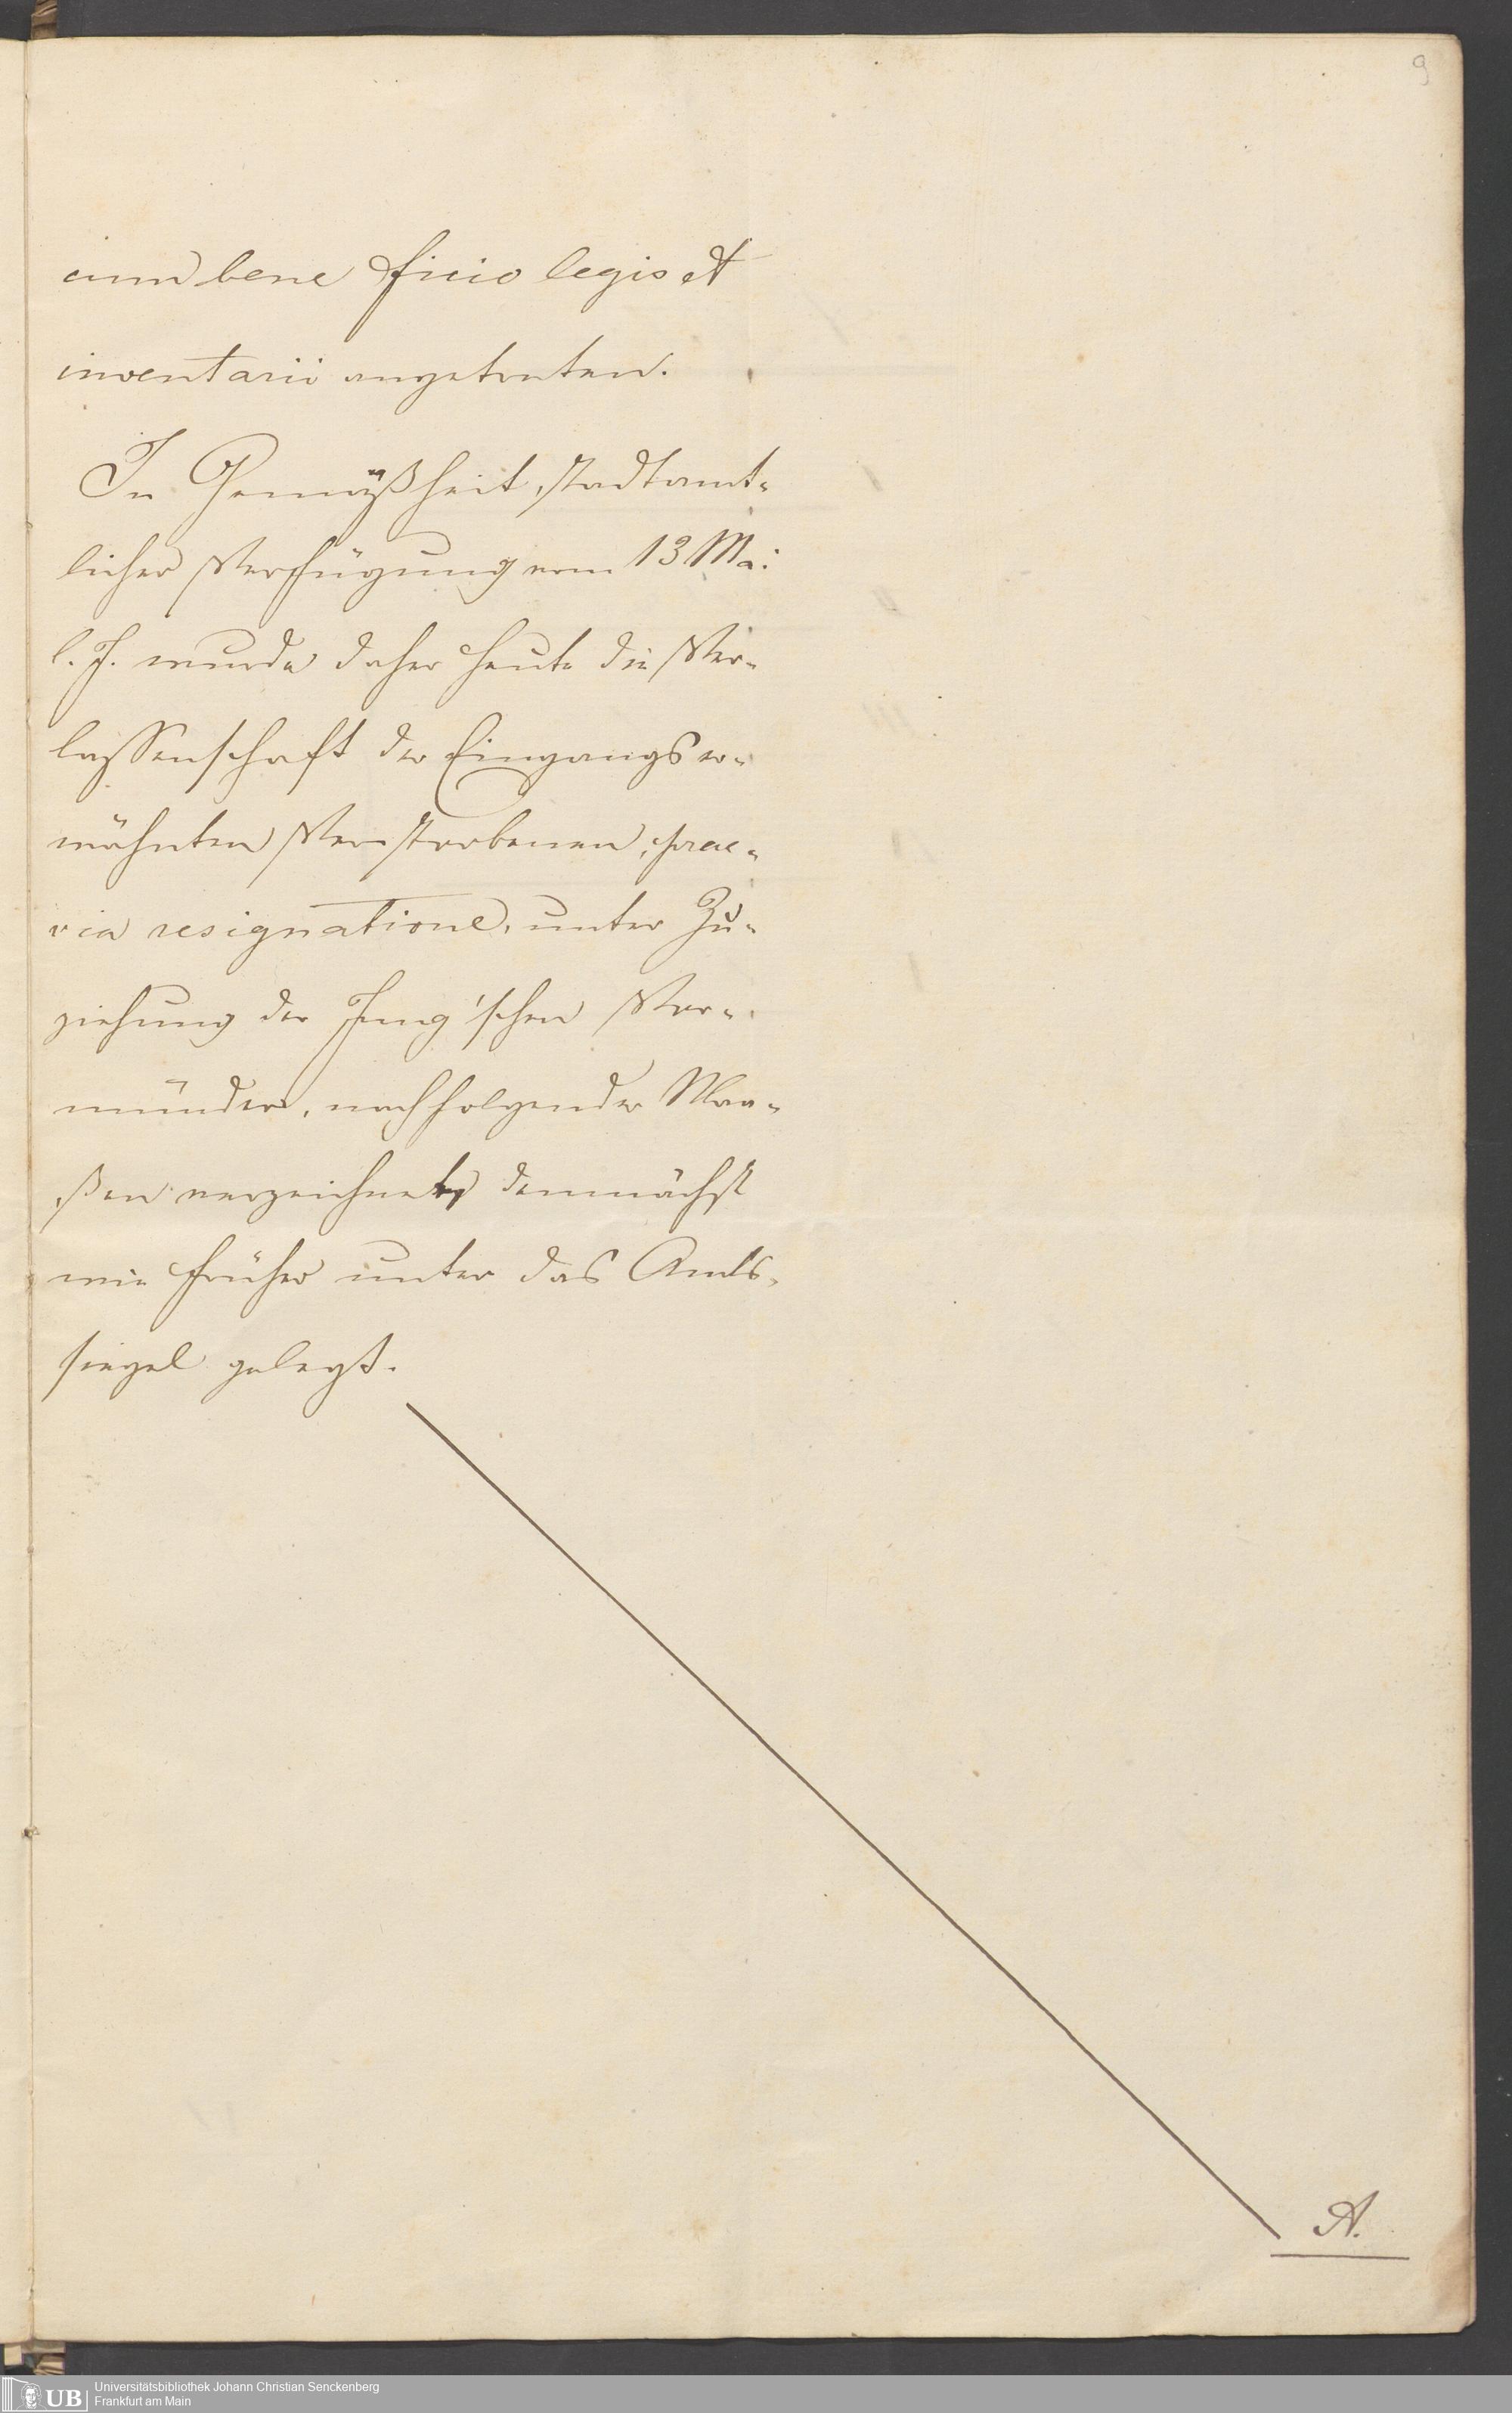 9
cum bene ficio legis et
inventarii angetreten.
In Gemäßheit stadtamt-
licher Verfügung vom 13 Mai
l. J. wurde daher heute die Ver-
lassenschaft der Eingangs er-
wähnten Verstorbenen, prae-
via resignatione, unter Zu-
ziehung der Jung'schen Vor-
münder, nachfolgender Maa-
ßen verzeichnet, demnächst
wie früher unter das Amts-
siegel gelegt.
A.
UB
Universitätsbibliothek Johann Christian Senckenberg
Frankfurt am Main